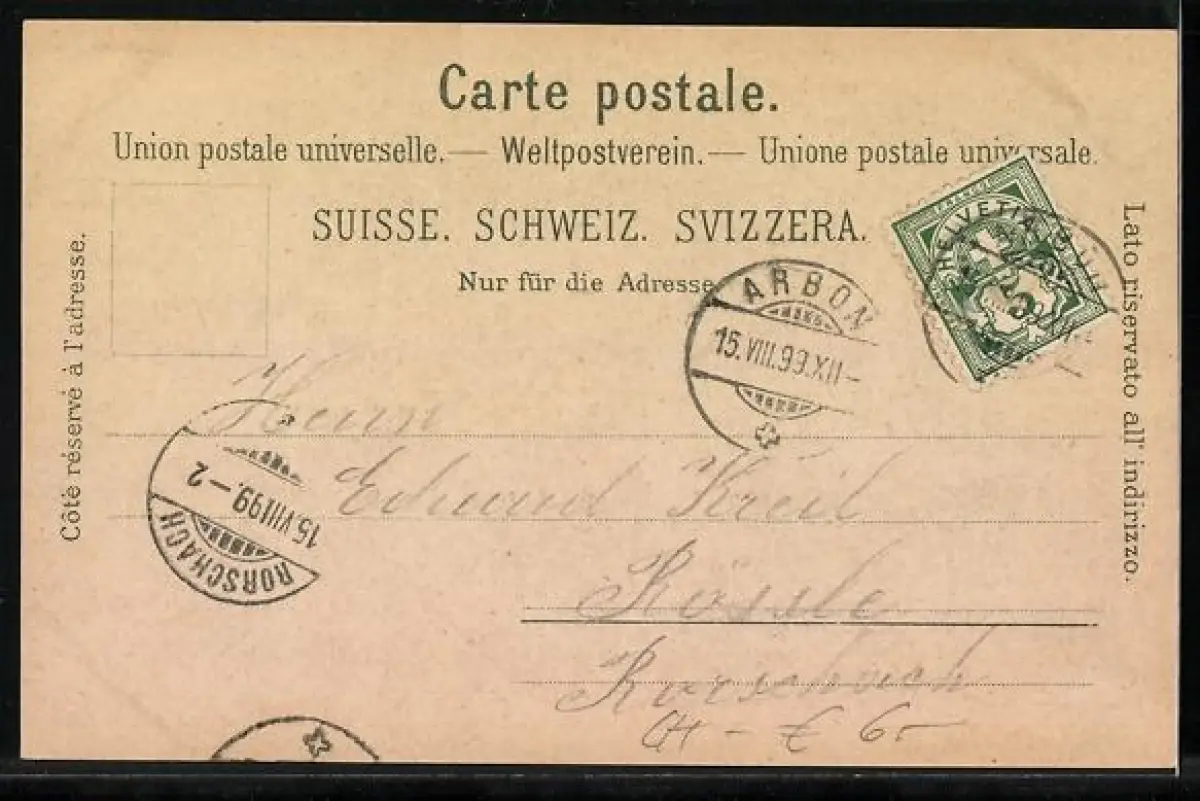 Carte postale.
Union postale universelle. — Weltpostverein. — Unione postale universale.
SUISSE. SCHWEIZ. SVIZZERA.
Nur für die Adresse
Côté réservé à l'adresse.
Lato riservato all' indirizzo.
FRANCO
HELVETIA
5
ARBON
15.VIII.99.XII–
RORSCHACH
15.VIII99.–2
Herrn
Eduard Kreil
Rössle
Rorschach
CH – € 6.–